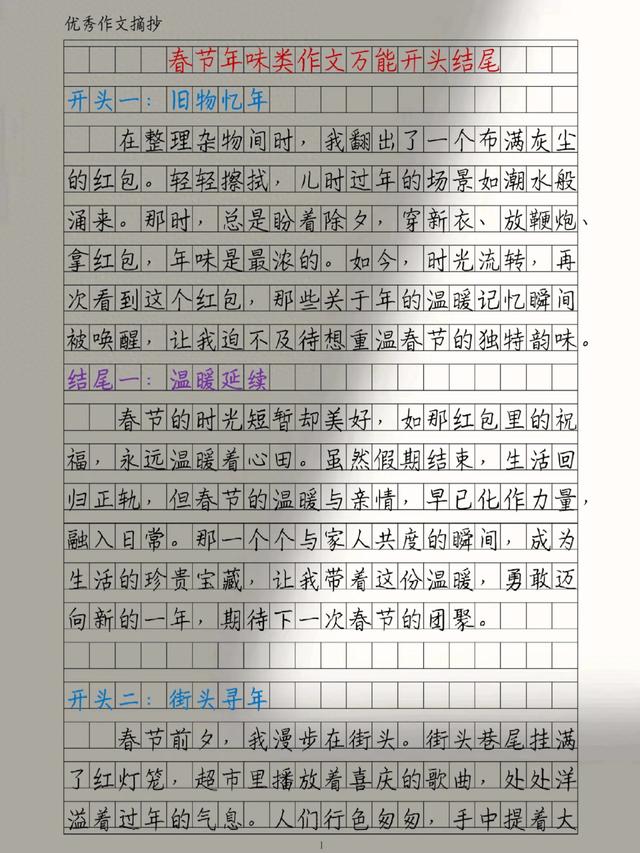 优秀作文摘抄
春节年味类作文万能开头结尾
开头一：旧物忆年
在整理杂物间时，我翻出了一个布满灰尘
的红包。轻轻擦拭，儿时过年的场景如潮水般
涌来。那时，总是盼着除夕，穿新衣、放鞭炮、
拿红包，年味是最浓的。如今，时光流转，再
次看到这个红包，那些关于年的温暖记忆瞬间
被唤醒，让我迫不及待想重温春节的独特韵味。
结尾一：温暖延续
春节的时光短暂却美好，如那红包里的祝
福，永远温暖着心田。虽然假期结束，生活回
归正轨，但春节的温暖与亲情，早已化作力量，
融入日常。那一个个与家人共度的瞬间，成为
生活的珍贵宝藏，让我带着这份温暖，勇敢迈
向新的一年，期待下一次春节的团聚。
开头二：街头寻年
春节前夕，我漫步在街头。街头巷尾挂满
了红灯笼，超市里播放着喜庆的歌曲，处处洋
溢着过年的气息。人们行色匆匆，手中提着大
1